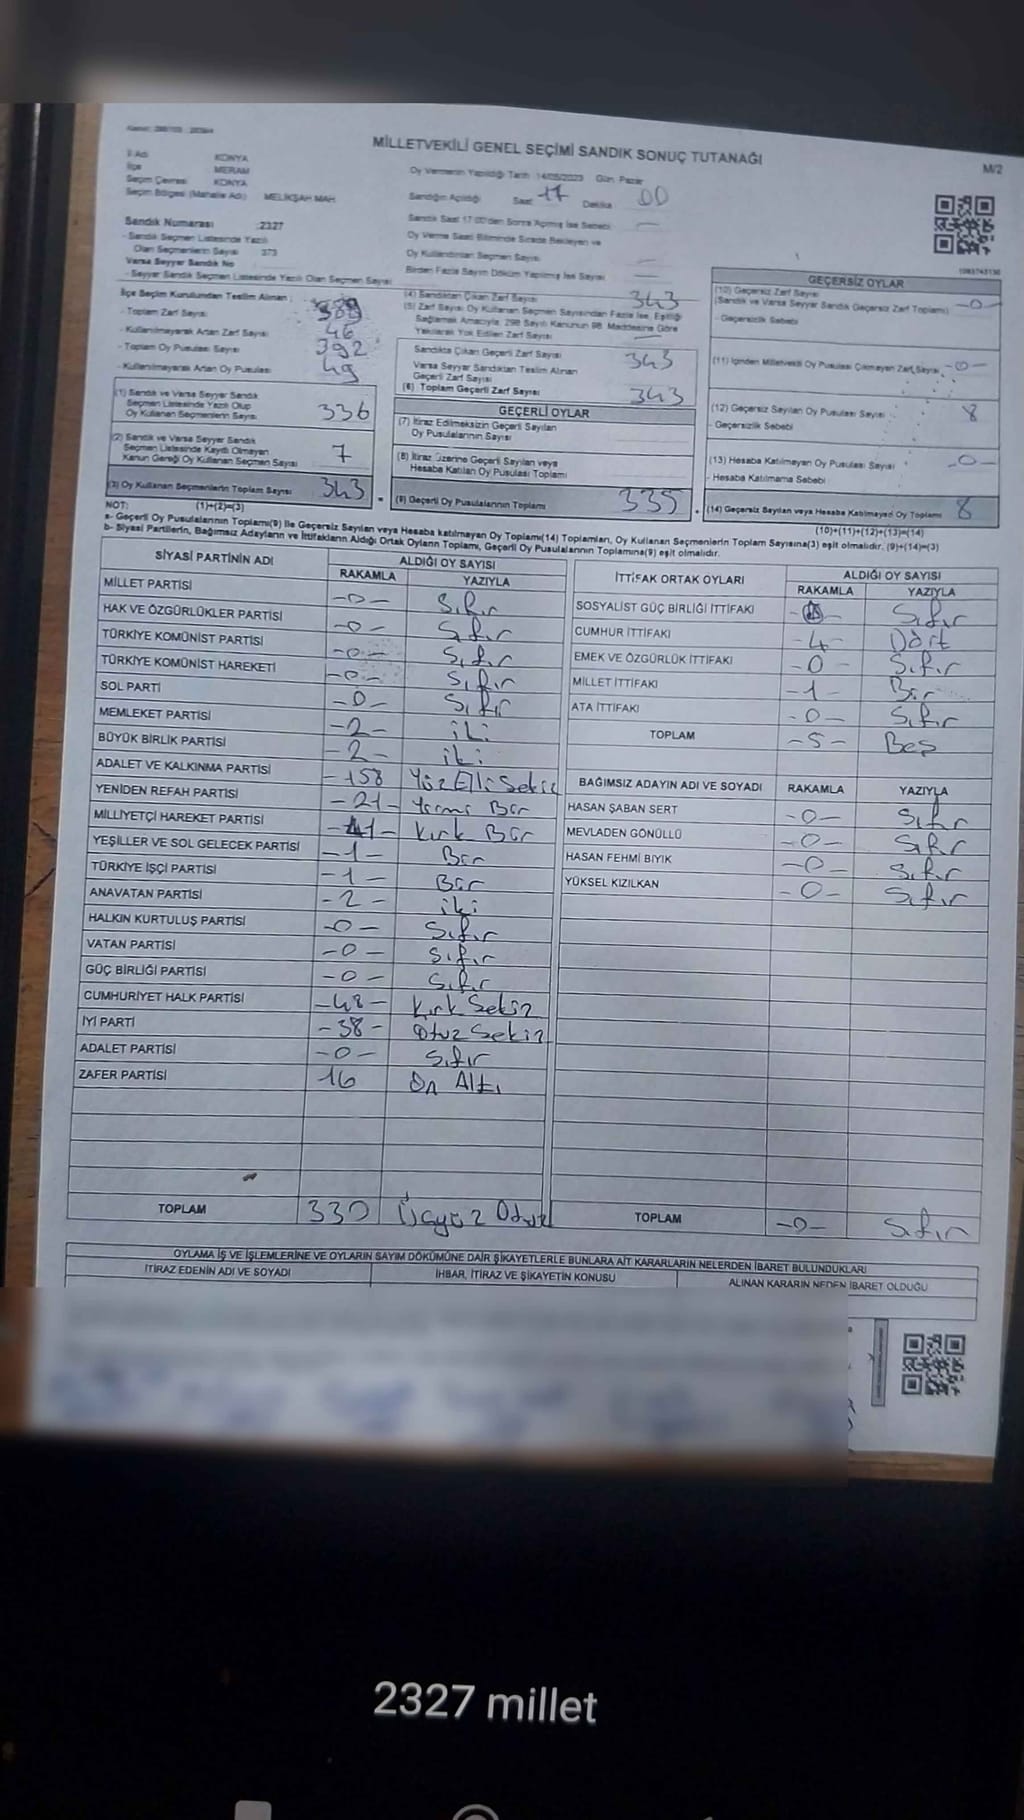 MİLLETVEKİLİ GENEL SEÇİMİ SANDIK SONUÇ TUTANAĞI
M/2
İl Adı KONYA
İlçe MERAM
Seçim Çevresi KONYA
Seçim Bölgesi (Mahalle Adı) MELİKŞAH MAH.
Oy Vermenin Yapıldığı Tarih 14/05/2023 Gün Pazar
Sandığın Açıldığı Saat 17 Dakika 00
Sandık Saat 17:00'den Sonra Açılmış İse Sebebi
Oy Verme Saati Bitiminde Sırada Bekleyen ve
Oy Kullandırılan Seçmen Sayısı
Birden Fazla Sayım Döküm Yapılmış İse Sayısı
Sandık Numarası :2327
- Sandık Seçmen Listesinde Yazılı
Olan Seçmenlerin Sayısı 373
Varsa Seyyar Sandık No
- Seyyar Sandık Seçmen Listesinde Yazılı Olan Seçmen Sayısı
İlçe Seçim Kurulundan Teslim Alınan
- Toplam Zarf Sayısı
- Kullanılmayarak Artan Zarf Sayısı 46
- Toplam Oy Pusulası Sayısı 392
- Kullanılmayarak Artan Oy Pusulası 49
(1) Sandık ve Varsa Seyyar Sandık
Seçmen Listesinde Yazılı Olup
Oy Kullanan Seçmenlerin Sayısı 336
(2) Sandık ve Varsa Seyyar Sandık
Seçmen Listesinde Kayıtlı Olmayan
Kanun Gereği Oy Kullanan Seçmen Sayısı 7
(3) Oy Kullanan Seçmenlerin Toplam Sayısı 343
(1)+(2)=(3)
(4) Sandıktan Çıkan Zarf Sayısı 343
(5) Zarf Sayısı Oy Kullanan Seçmen Sayısından Fazla İse, Eşitliği
Sağlamak Amacıyla, 298 Sayılı Kanunun 98. Maddesine Göre
Yakılarak Yok Edilen Zarf Sayısı
Sandıkta Çıkan Geçerli Zarf Sayısı 343
Varsa Seyyar Sandıktan Teslim Alınan
Geçerli Zarf Sayısı
(6) Toplam Geçerli Zarf Sayısı 343
GEÇERLİ OYLAR
(7) İtiraz Edilmeksizin Geçerli Sayılan
Oy Pusulalarının Sayısı
(8) İtiraz Üzerine Geçerli Sayılan veya
Hesaba Katılan Oy Pusulası Toplamı
(9) Geçerli Oy Pusulalarının Toplamı 335
GEÇERSİZ OYLAR
(10) Geçersiz Zarf Sayısı
(Sandık ve Varsa Seyyar Sandık Geçersiz Zarf Toplamı) -0-
- Geçersizlik Sebebi
(11) İçinden Milletvekili Oy Pusulası Çıkmayan Zarf Sayısı -0-
(12) Geçersiz Sayılan Oy Pusulası Sayısı 8
- Geçersizlik Sebebi
(13) Hesaba Katılmayan Oy Pusulası Sayısı -0-
- Hesaba Katılmama Sebebi
(14) Geçersiz Sayılan veya Hesaba Katılmayan Oy Toplamı 8
(10)+(11)+(12)+(13)=(14)
NOT:
a- Geçerli Oy Pusulalarının Toplamı(9) ile Geçersiz Sayılan veya Hesaba katılmayan Oy Toplamı(14) Toplamları, Oy Kullanan Seçmenlerin Toplam Sayısına(3) eşit olmalıdır. (9)+(14)=(3)
b- Siyasi Partilerin, Bağımsız Adayların ve İttifakların Aldığı Ortak Oyların Toplamı, Geçerli Oy Pusulalarının Toplamına(9) eşit olmalıdır.
SİYASİ PARTİNİN ADI ALDIĞI OY SAYISI
RAKAMLA YAZIYLA
MİLLET PARTİSİ -0- Sıfır
HAK VE ÖZGÜRLÜKLER PARTİSİ -0- Sıfır
TÜRKİYE KOMÜNİST PARTİSİ -0- Sıfır
TÜRKİYE KOMÜNİST HAREKETİ -0- Sıfır
SOL PARTİ -0- Sıfır
MEMLEKET PARTİSİ -2- iki
BÜYÜK BİRLİK PARTİSİ -2- iki
ADALET VE KALKINMA PARTİSİ -158 Yüz Elli Sekiz
YENİDEN REFAH PARTİSİ -21- Yirmi Bir
MİLLİYETÇİ HAREKET PARTİSİ -41- Kırk Bir
YEŞİLLER VE SOL GELECEK PARTİSİ -1- Bir
TÜRKİYE İŞÇİ PARTİSİ -1- Bir
ANAVATAN PARTİSİ -2- iki
HALKIN KURTULUŞ PARTİSİ -0- Sıfır
VATAN PARTİSİ -0- Sıfır
GÜÇ BİRLİĞİ PARTİSİ -0- Sıfır
CUMHURİYET HALK PARTİSİ -48- Kırk Sekiz
İYİ PARTİ -38- Otuz Sekiz
ADALET PARTİSİ -0- Sıfır
ZAFER PARTİSİ 16 On Altı
TOPLAM 330 Üçyüz Otuz
İTTİFAK ORTAK OYLARI ALDIĞI OY SAYISI
RAKAMLA YAZIYLA
SOSYALİST GÜÇ BİRLİĞİ İTTİFAKI Sıfır
CUMHUR İTTİFAKI -4- Dört
EMEK VE ÖZGÜRLÜK İTTİFAKI -0- Sıfır
MİLLET İTTİFAKI -1- Bir
ATA İTTİFAKI -0- Sıfır
TOPLAM -5- Beş
BAĞIMSIZ ADAYIN ADI VE SOYADI RAKAMLA YAZIYLA
HASAN ŞABAN SERT -0- Sıfır
MEVLADEN GÖNÜLLÜ -0- Sıfır
HASAN FEHMİ BIYIK -0- Sıfır
YÜKSEL KIZILKAN -0- Sıfır
TOPLAM -0- Sıfır
OYLAMA İŞ VE İŞLEMLERİNE VE OYLARIN SAYIM DÖKÜMÜNE DAİR ŞİKAYETLERLE BUNLARA AİT KARARLARIN NELERDEN İBARET BULUNDUKLARI
İTİRAZ EDENİN ADI VE SOYADI İHBAR, İTİRAZ VE ŞİKAYETİN KONUSU ALINAN KARARIN NEDEN İBARET OLDUĞU
2327 millet